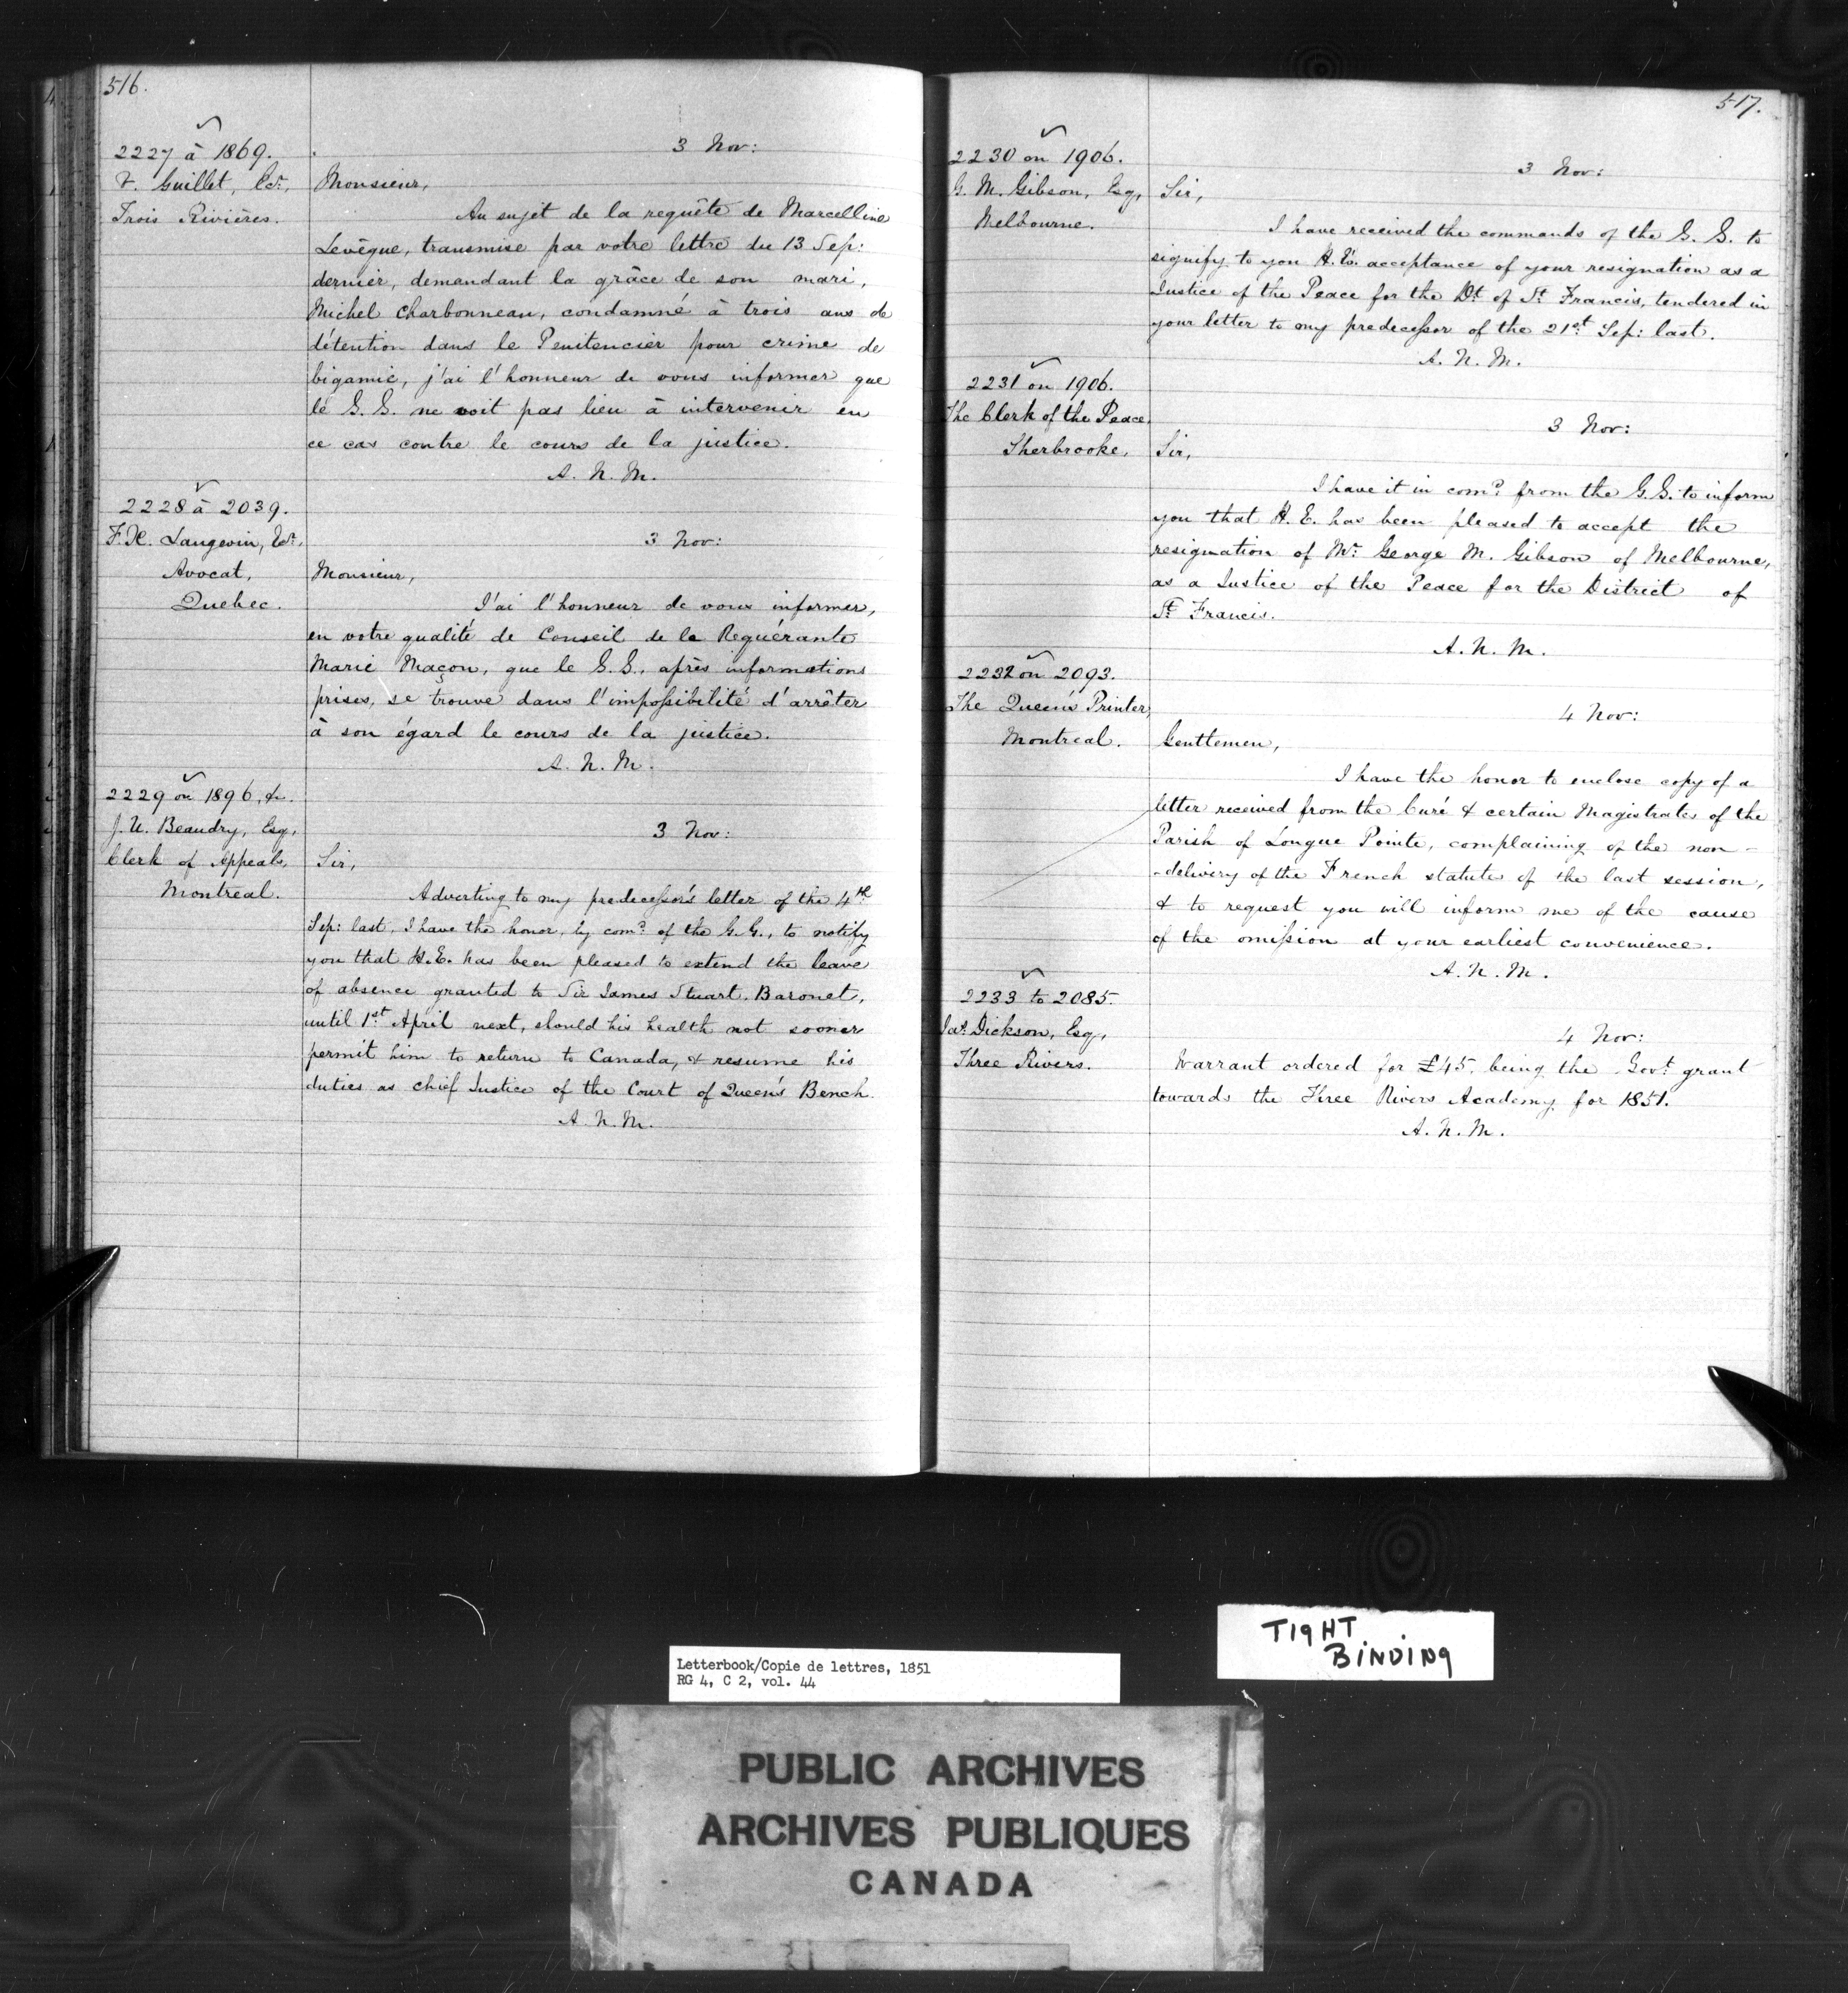 516.
2227 à 1869.
V. Guillet, Ecr.
Trois Rivières.
3 Nov:
Monsieur,
Au sujet de la requête de Marcelline
Levêque, transmise par votre lettre du 13 Sep:
dernier, demandant la grâce de son mari,
Michel Charbonneau, condamné à trois ans de
détention dans le Penitencier pour crime de
bigamie, j'ai l'honneur de vous informer que
le G. G. ne voit pas lieu à intervenir en
ce cas contre le cours de la justice.
A. N. M.
2228 à 2039.
F. X. Langevin, Ecr.
Avocat,
Quebec.
3 Nov:
Monsieur,
J'ai l'honneur de vous informer,
en votre qualité de Conseil de la Requérante
Marie Maçon, que le G. G., après informations
prises, se trouve dans l'impossibilité d'arrêter
à son égard le cours de la justice.
A. N. M.
2229 on 1896, &c.
J. U. Beaudry, Esq,
Clerk of Appeals,
Montreal.
3 Nov:
Sir,
Adverting to my predecessor's letter of the 4th
Sep: last, I have the honor, by comd. of the G. G., to notify
you that H. E. has been pleased to extend the leave
of absence granted to Sir James Stuart, Baronet,
until 1st April next, should his health not sooner
permit him to return to Canada, & resume his
duties as Chief Justice of the Court of Queen's Bench.
A. N. M.
517.
2230 on 1906.
G. M. Gibson, Esq,
Melbourne.
3 Nov:
Sir,
I have received the commands of the G. G. to
signify to you H. E's. acceptance of your resignation as a
Justice of the Peace for the Dt. of St. Francis, tendered in
your letter to my predecessor of the 21st Sep: last.
A. N. M.
2231 on 1906.
The Clerk of the Peace,
Sherbrooke,
3 Nov:
Sir,
I have it in comd. from the G. G. to inform
you that H. E. has been pleased to accept the
resignation of Mr. George M. Gibson of Melbourne,
as a Justice of the Peace for the District of
St. Francis.
A. N. M.
2232 on 2093.
The Queen's Printer,
Montreal.
4 Nov:
Gentlemen,
I have the honor to enclose copy of a
letter received from the Curé & certain Magistrates of the
Parish of Longue Pointe, complaining of the non-
-delivery of the French statute of the last session,
& to request you will inform me of the cause
of the omission at your earliest convenience.
A. N. M.
2233 to 2085.
Jas. Dickson, Esq,
Three Rivers.
4 Nov:
Warrant ordered for £45, being the Govt. grant
towards the Three Rivers Academy for 1851.
A. N. M.
TIGHT
BINDING
Letterbook/Copie de lettres, 1851
RG 4, C 2, vol. 44
PUBLIC ARCHIVES
ARCHIVES PUBLIQUES
CANADA